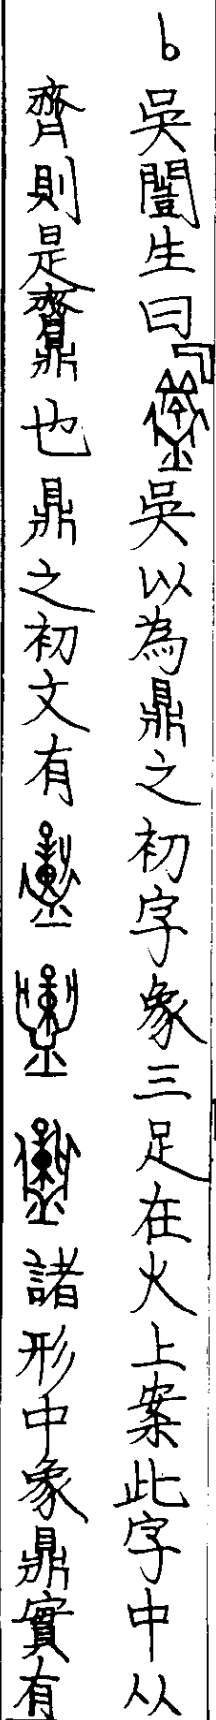 b 吳闓生曰『吳以為鼎之初字象三足在火上案此字中从
齊則是齍鼎也鼎之初文有諸形中象鼎實有